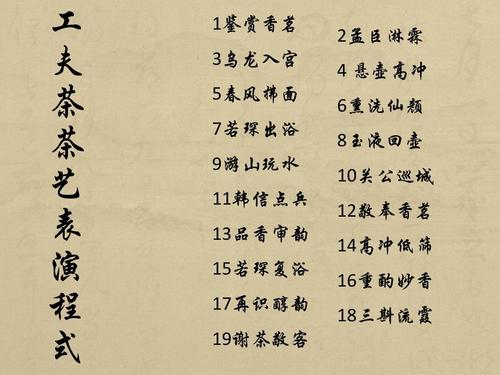 工夫茶茶艺表演程式
1鉴赏香茗
2孟臣淋霖
3乌龙入宫
4 悬壶高冲
5春风拂面
6熏洗仙颜
7若琛出浴
8玉液回壶
9游山玩水
10关公巡城
11韩信点兵
12敬奉香茗
13品香审韵
14高冲低筛
15若琛复浴
16重酌妙香
17再识醇韵
18三斟流霞
19谢茶敬客